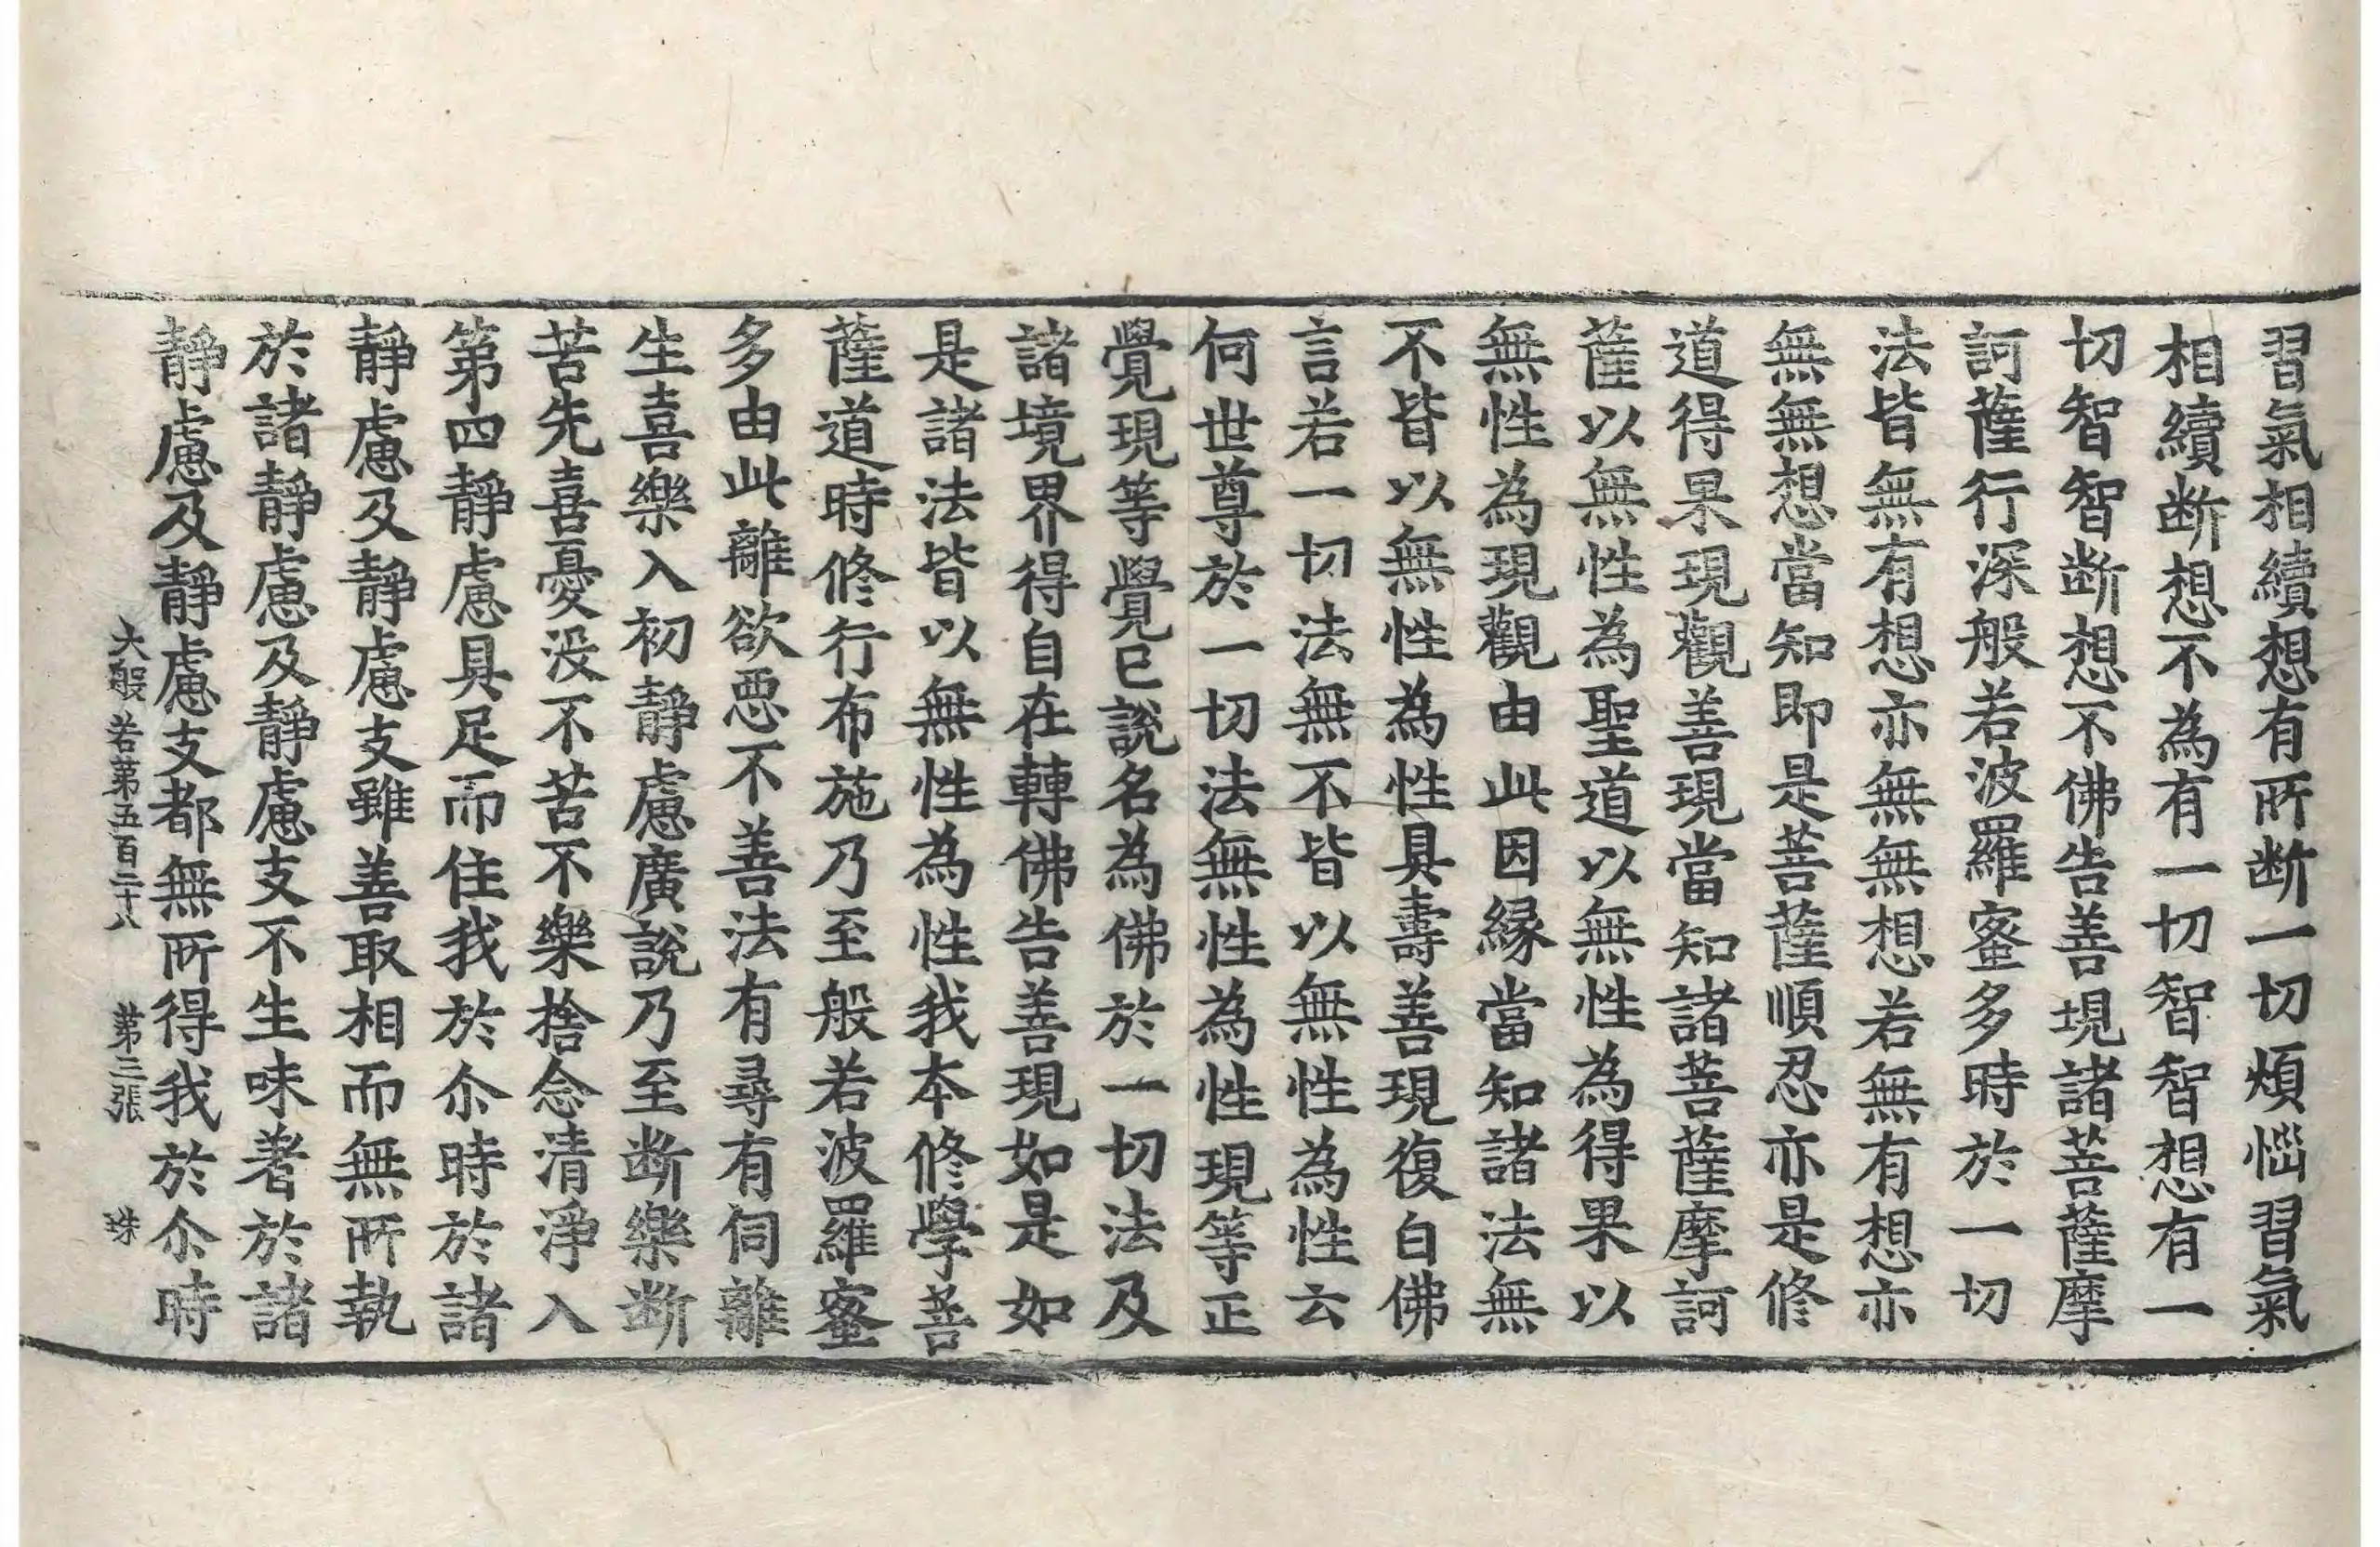 習氣相續想有所断一切煩惱習氣
相續断想不為有一切智智想有一
切智智断想不佛告善現諸菩薩摩
訶薩行深般若波羅蜜多時於一切
法皆無有想亦無無想若無有想亦
無無想當知即是菩薩順忍亦是修
道得果現觀善現當知諸菩薩摩訶
薩以無性為聖道以無性為得果以
無性為現觀由此因緣當知諸法無
不皆以無性為性具壽善現復白佛
言若一切法無不皆以無性為性云
何世尊於一切法無性為性現等正
覺現等覺已說名為佛於一切法及
諸境界得自在轉佛告善現如是如
是諸法皆以無性為性我本修學菩
薩道時修行布施乃至般若波羅蜜
多由此離欲惡不善法有尋有伺離
生喜樂入初靜慮廣說乃至断樂断
苦先喜憂没不苦不樂捨念清淨入
第四靜慮具足而住我於尒時於諸
靜慮及靜慮支雖善取相而無所執
於諸靜慮及靜慮支不生味著於諸
靜慮及靜慮支都無所得我於尒時
大般若第五百二十八 第三張 珠